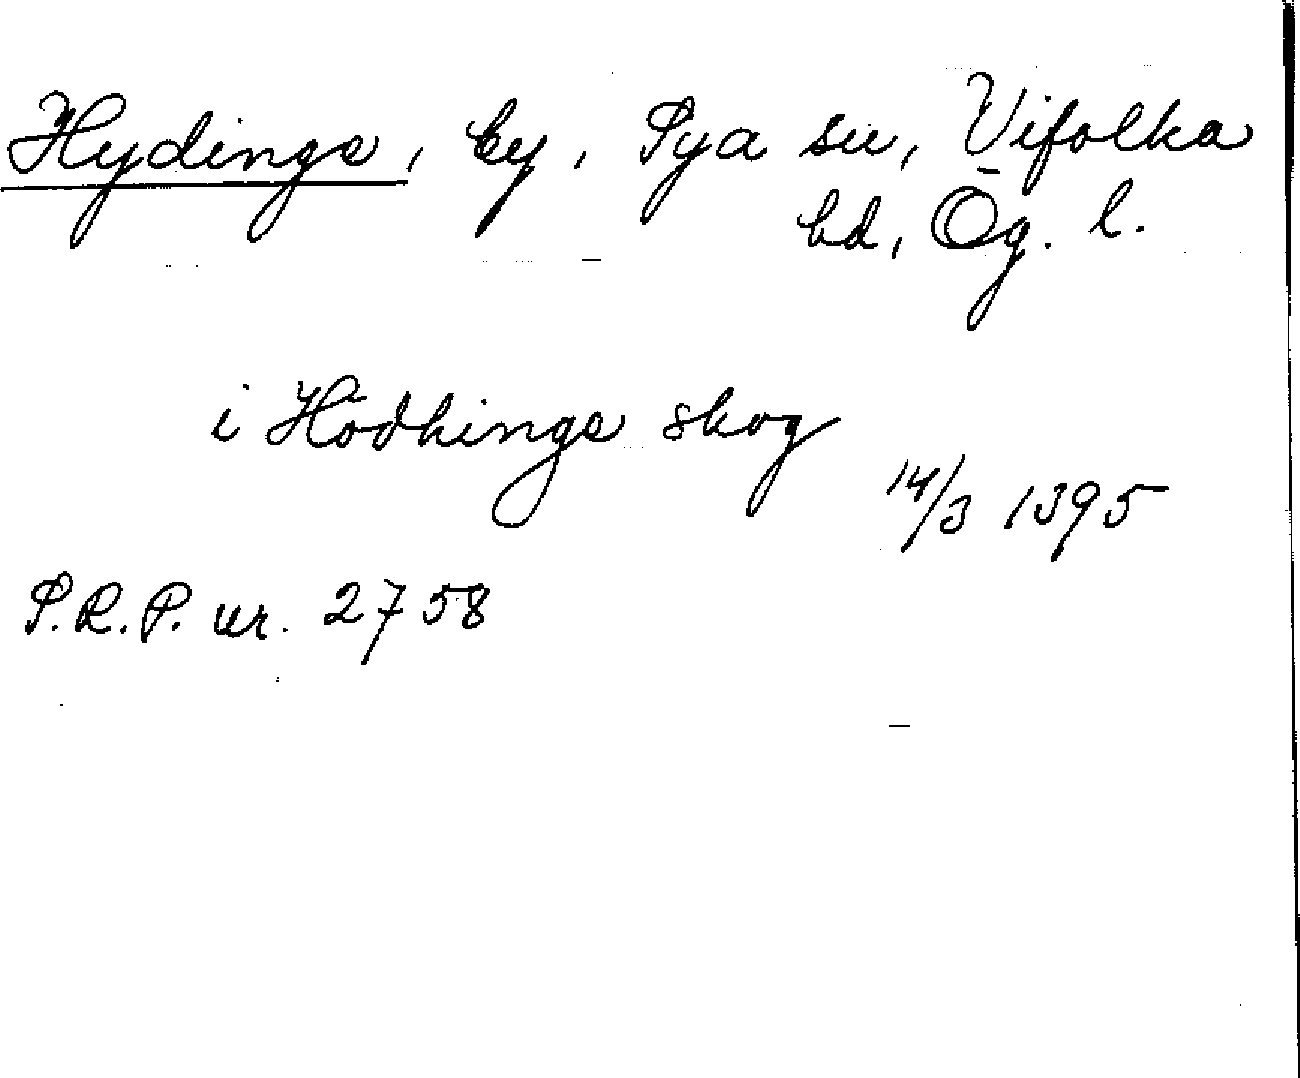 Hydinge, by, Sya sn, Vifolka
hd, Ög. l.
i Hödhinge skog
14/3 1395
S.R.P. nr. 2758